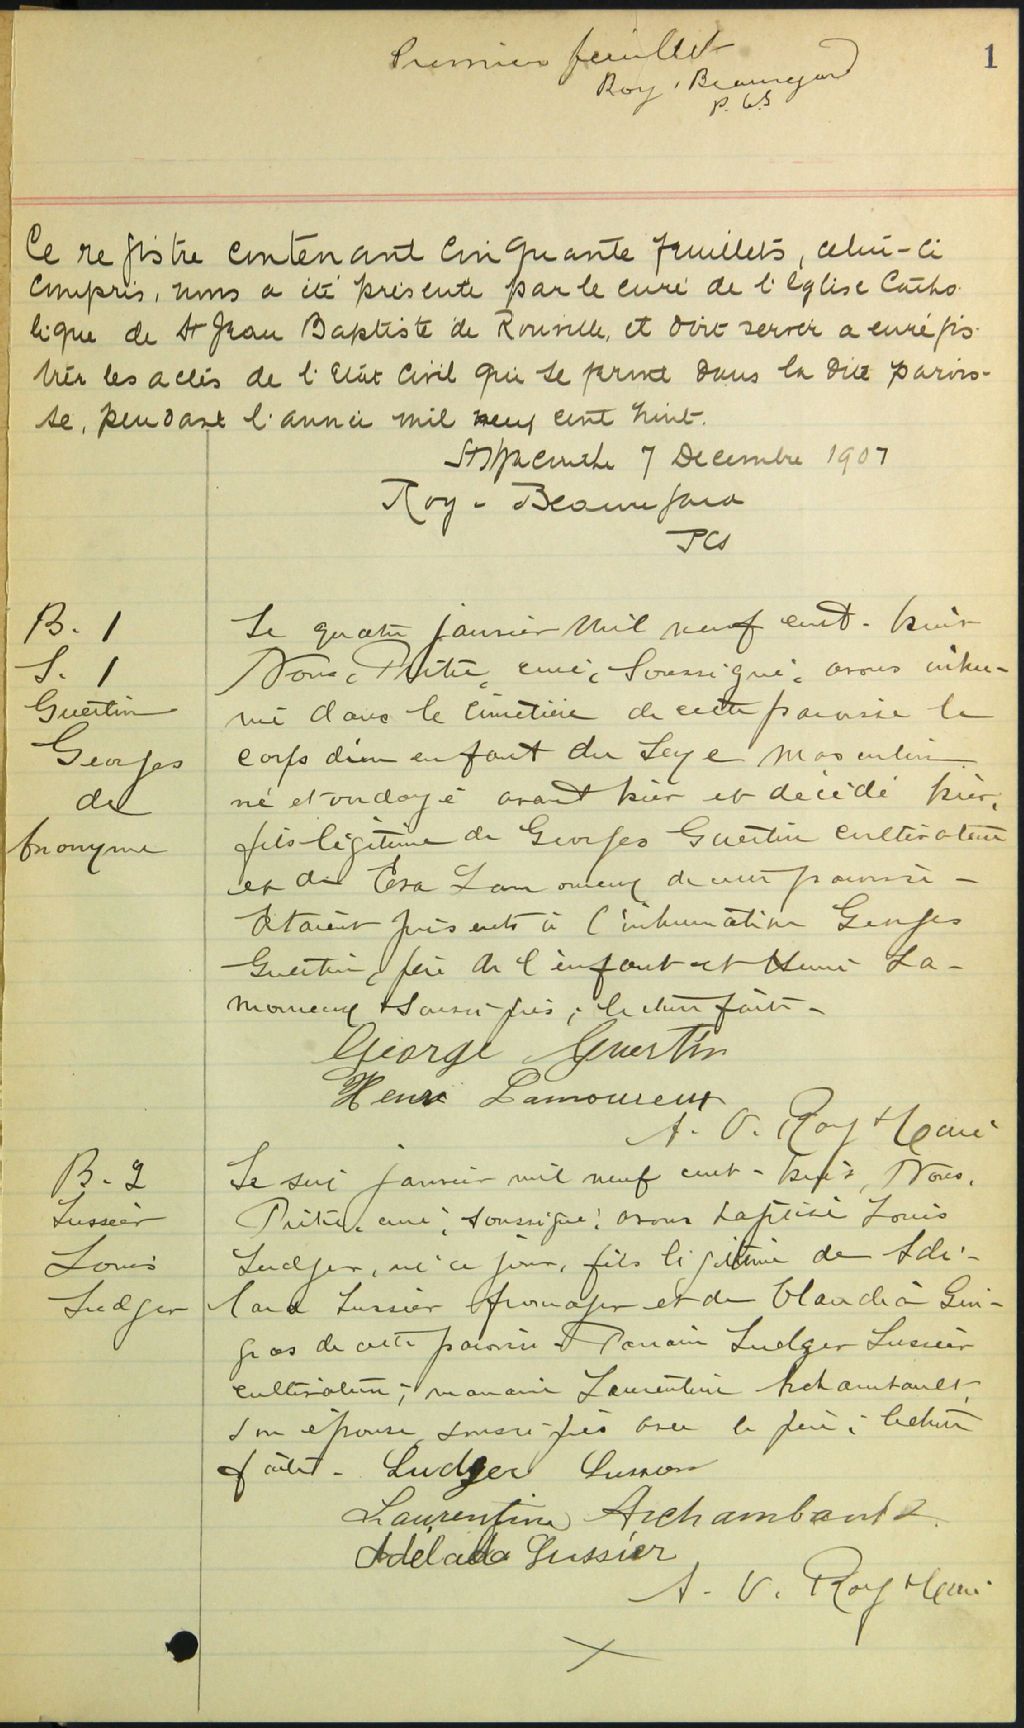 Premier feuillet
1
Roy, Beauregard
P. C. S
Ce registre contenant cinquante feuillets, celui-ci
compris, nous a été présenté par le curé de l'Eglise Catho
lique de St Jean Baptiste de Rouville, et doit servir a enrégis
trer les actes de l'Etat Civil qui se feront dans la dite parois-
se, pendant l'année mil neuf cent huit.
St Hyacinthe 7 Decembre 1907
Roy - Beauregard
PCS
B. 1
S. 1
Guertin
Georges
de
Anonyme
Le quatre janvier mil neuf cent-huit
Nous, Prêtre, curé, soussigné, avons inhu-
mé dans le cimetière de cette paroisse le
corps d'un enfant du sexe masculin
né et ondoyé avant hier et décédé hier,
fils légitime de Georges Guertin cultivateur
et de Eva Lamoureux de cette paroisse -
Etaient présents à l'inhumation Georges
Guertin, père de l'enfant et Henri La-
moureux soussignés; lecture faite -
George Guertin
Henri Lamoureux
A. O. Roy Ptre curé
B. 2
Lussier
Louis
Ludger
Le six janvier mil neuf cent-huit, Nous,
Prêtre, curé, soussigné, avons baptisé Louis
Ludger, né ce jour, fils légitime de Adé-
lard Lussier fromager et de Claudia Gin-
gras de cette paroisse Parrain Ludger Lussier
cultivateur; marraine Laurentine Archambault,
son épouse soussignés avec le père; lecture
faite - Ludger Lussier
Laurentine Archambault
Adélard Lussier
A. O. Roy Ptre curé